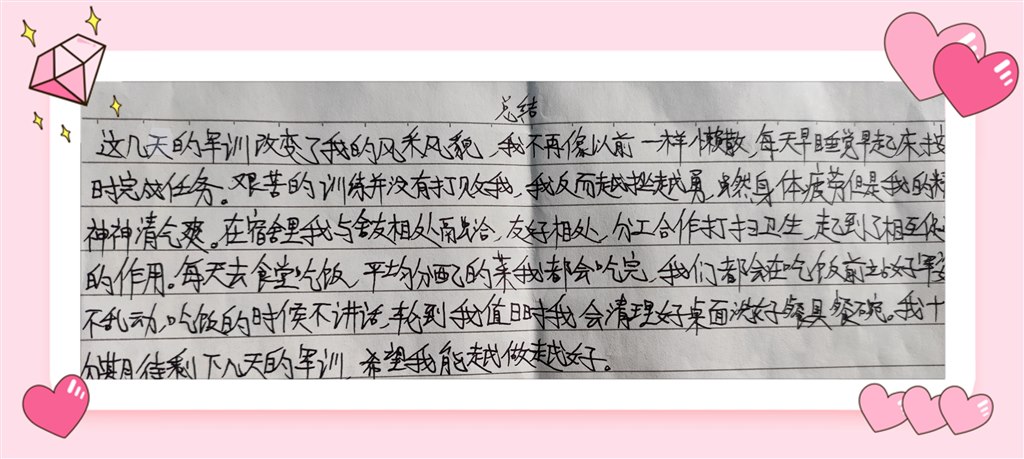 总结
这几天的军训改变了我的风采风貌,我不再像以前一样懒散,每天早睡觉早起床,按
时完成任务。艰苦的训练并没有打败我,我反而越挫越勇,虽然身体疲劳但是我的精
神神清气爽。在宿舍里我与舍友相处融洽,友好相处,分工合作打扫卫生,起到了相互促
的作用。每天去食堂吃饭,平均分配的菜我都会吃完,我们都会在吃饭前站好军姿
不乱动,吃饭的时候不讲话,轮到我值日时我会清理好桌面洗好餐具餐碗。我十
分期待剩下几天的军训,希望我能越做越好。